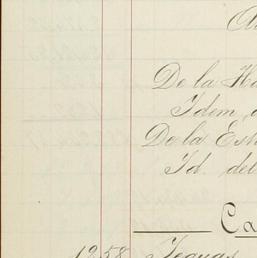 De la Ha
Idem
De la Est
Id. del
Ca
1258 Yeguas